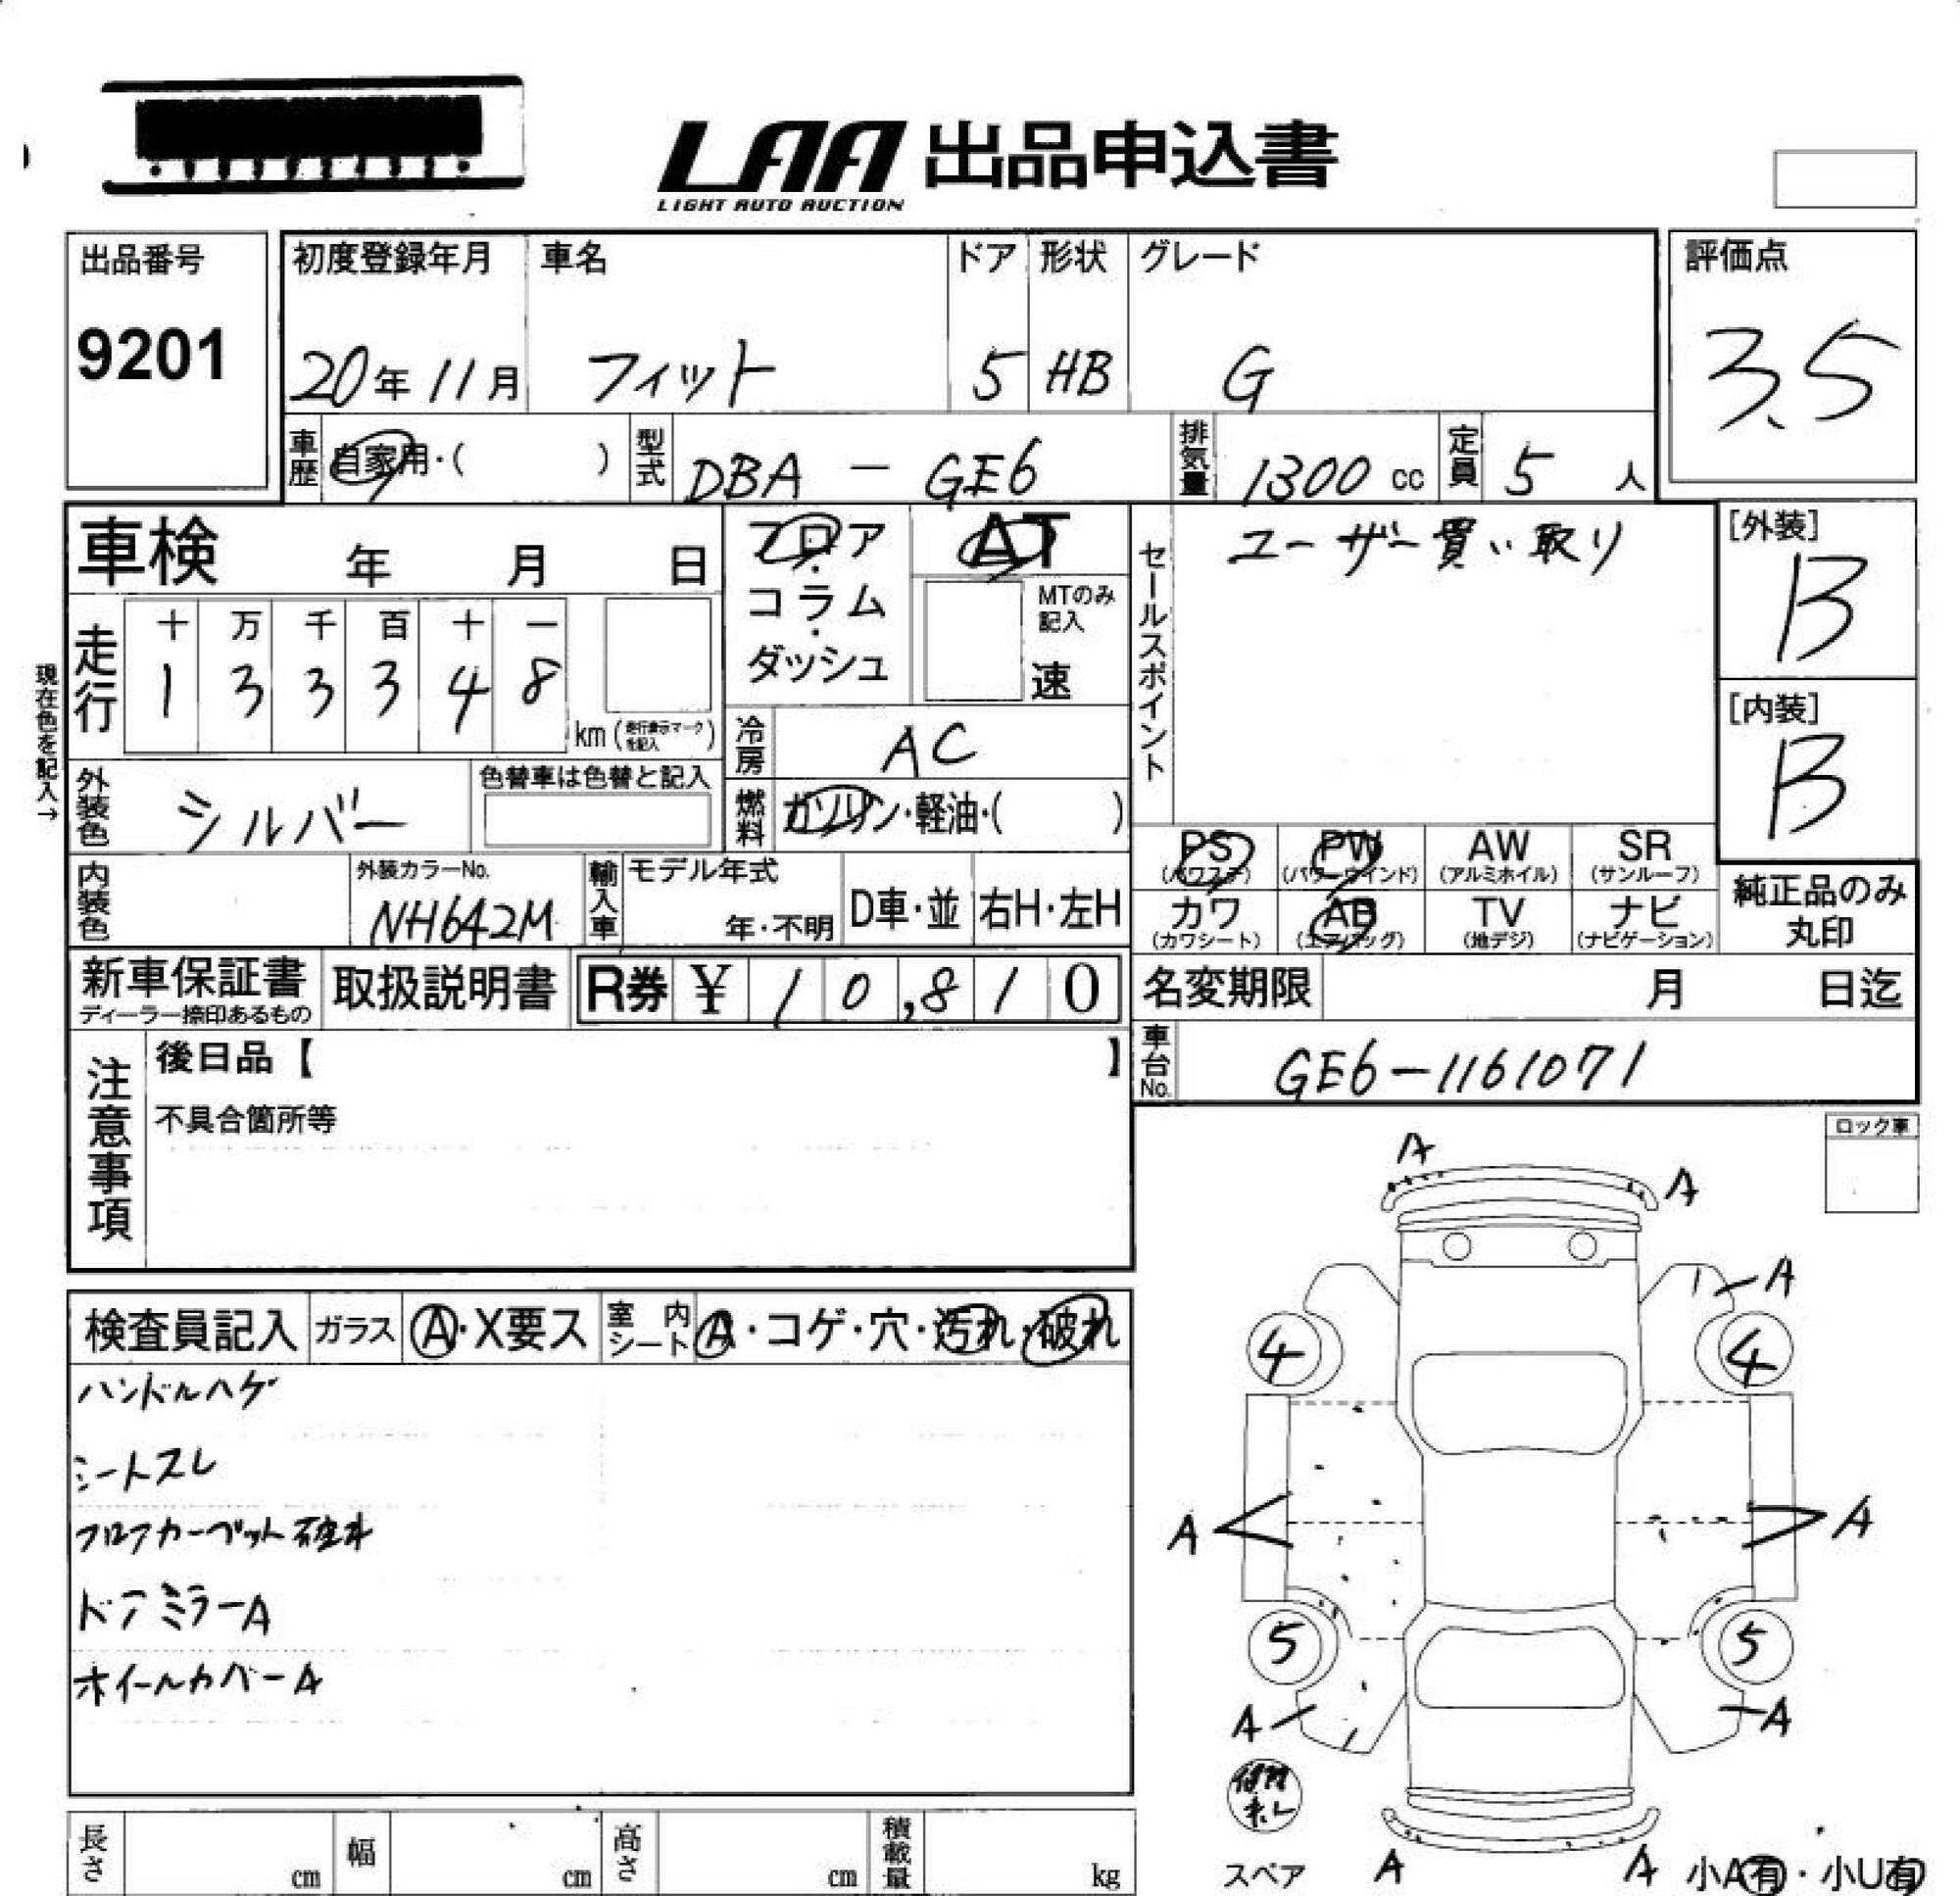 LAA 出品申込書
LIGHT AUTO AUCTION
出品番号
9201
初度登録年月 車名 ドア 形状 グレード
20年11月 フィット 5 HB G
評価点
3.5
車歴 自家用・( ) 型式 DBA - GE6 排気量 1300 cc 定員 5 人
車検 年 月 日
フロア・コラム・ダッシュ
AT
MTのみ記入
速
セールスポイント
ユーザー買い取り
[外装]
B
[内装]
B
現在色を記入→
走行
十 万 千 百 十 一
1 3 3 3 4 8
km (走行表示マークを記入)
冷房 AC
燃料 ガソリン・軽油・( )
外装色 シルバー 色替車は色替と記入
内装色
外装カラーNo.
NH642M
輸入車 モデル年式
年・不明 D車・並 右H・左H
PS (パワステ) PW (パワーウインド) AW (アルミホイル) SR (サンルーフ)
カワ (カワシート) AB (エアバッグ) TV (地デジ) ナビ (ナビゲーション)
純正品のみ
丸印
新車保証書
ディーラー捺印あるもの
取扱説明書
R券 ¥ 10,810
名変期限 月 日迄
車台No. GE6-1161071
注意事項
後日品【 】
不具合箇所等
ロック車
検査員記入 ガラス A・X要ス 室内シート A・コゲ・穴・汚れ・破れ
ハンドルハゲ
シートスレ
フロアカーペット破れ
ドアミラーA
ホイールカバーA
A
A
A
4 4
A A
5 5
A A
修理歴なし
スペア
A A
小A有・小U有
長さ cm 幅 cm 高さ cm 積載量 kg